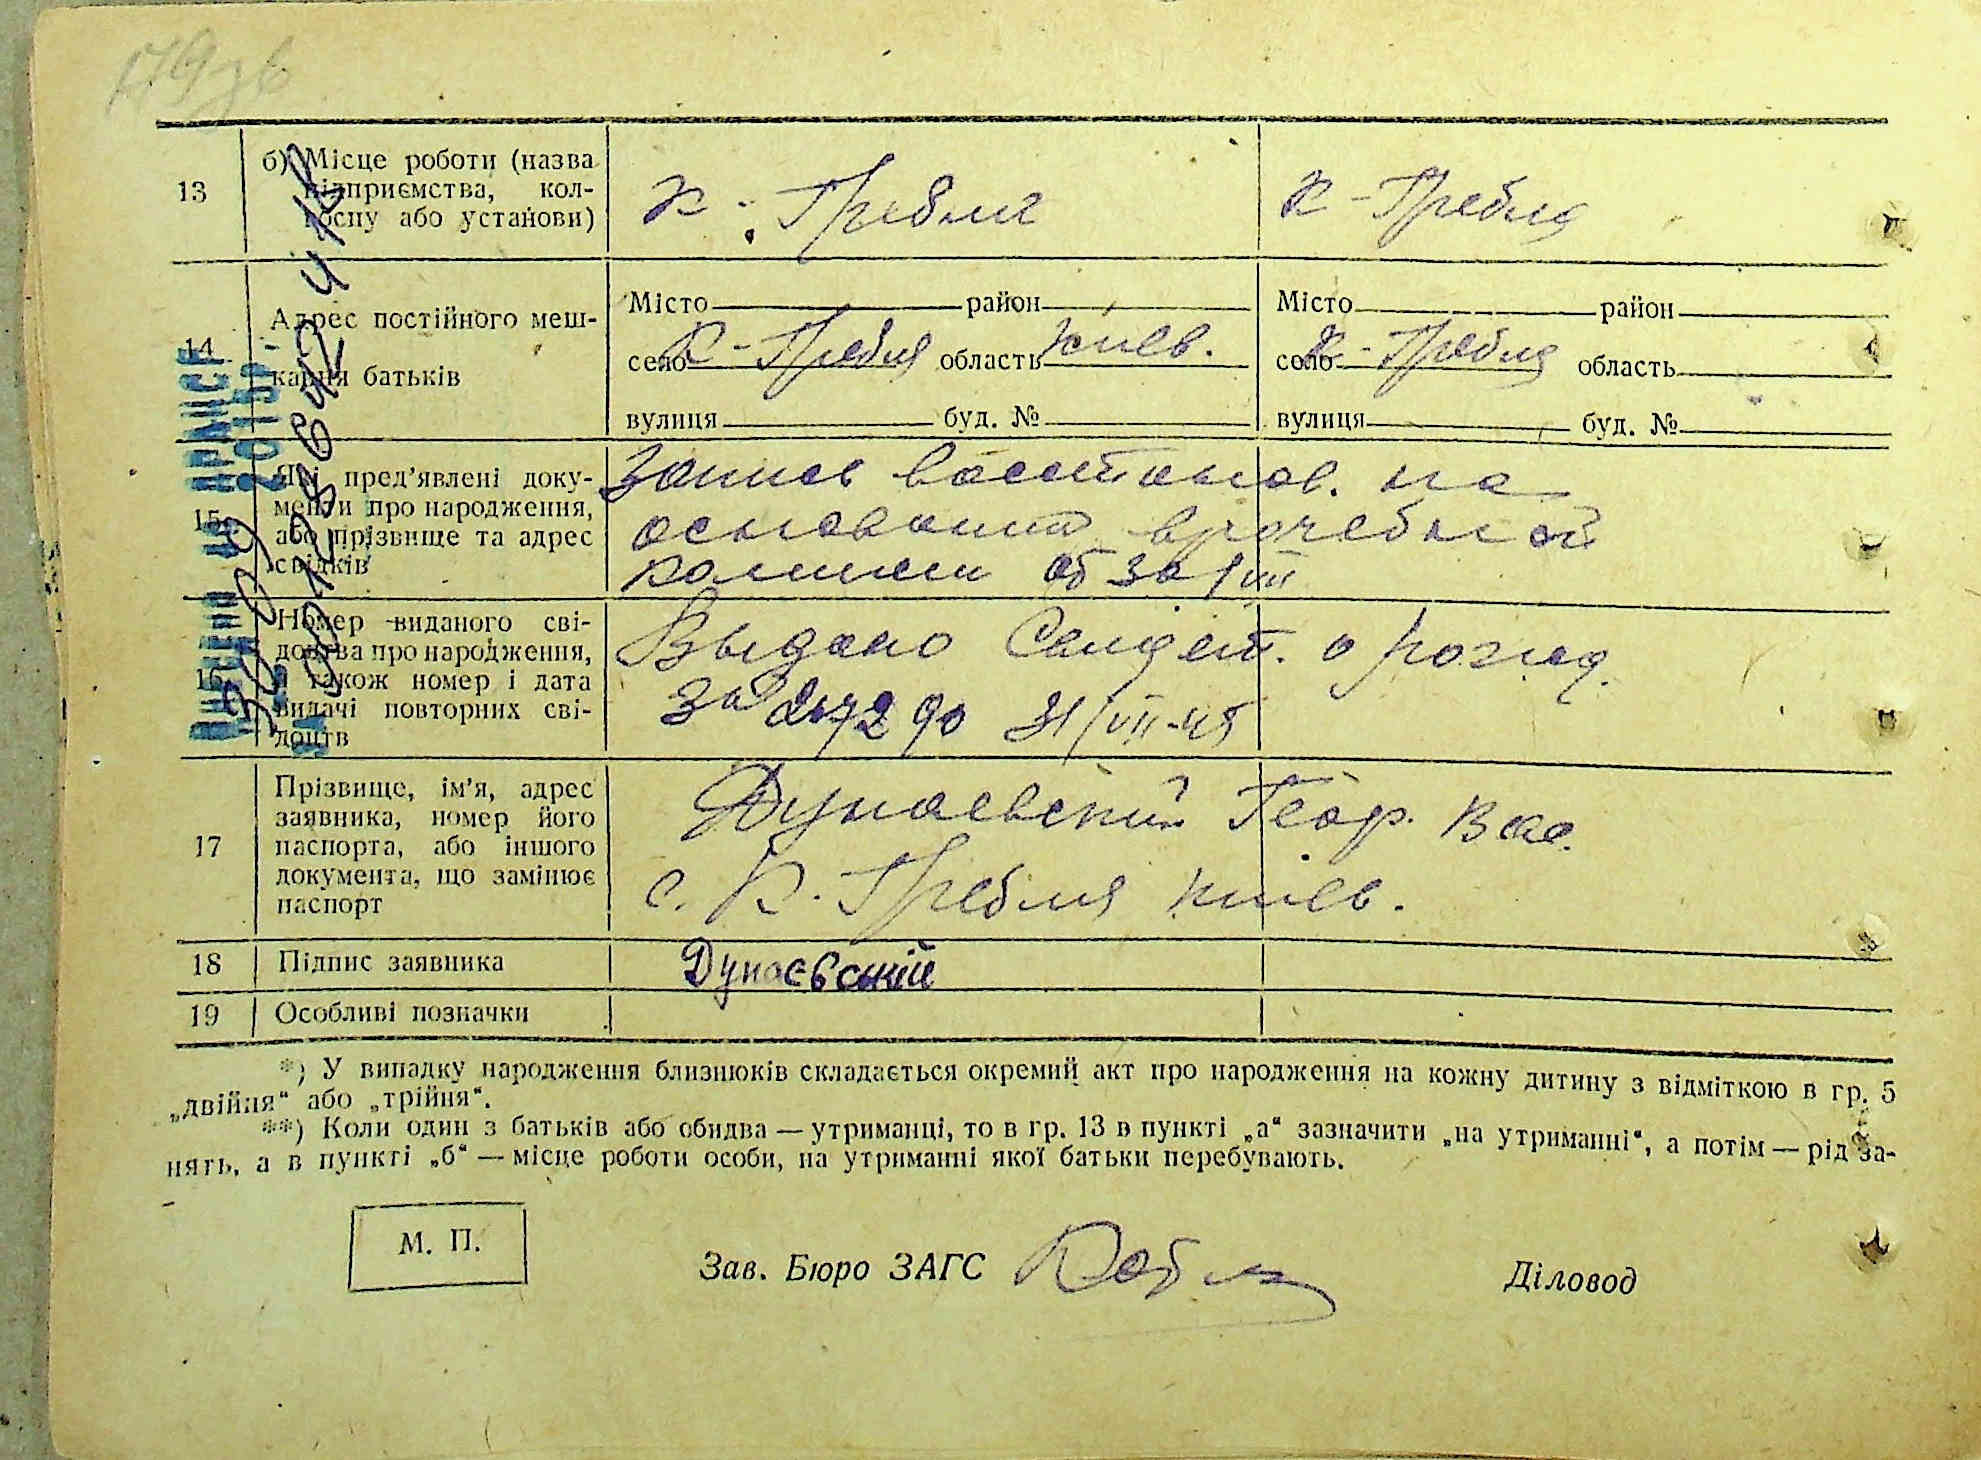 13
б) Місце роботи (назва
підприємства, кол-
госпу або установи)
К. Гребля
К-Гребля
14
Адрес постійного меш-
кання батьків
Місто район
село К-Гребля область Киев.
вулиця буд. №
Місто район
село К-Гребля область
вулиця буд. №
15
Які пред'явлені доку-
менти про народження,
або прізвище та адрес
свідків
Запись восстанов. на
основании врачебной
комиссии от 30/VII
16
Номер виданого сві-
доцтва про народження,
а також номер і дата
видачі повторних сві-
доцтв
Выдано Свидет. о рожд.
31/VII-45
17
Прізвище, ім'я, адрес
заявника, номер його
паспорта, або іншого
документа, що замінює
паспорт
Дунаевский Геор. Вас.
с. К. Гребля Киев.
18
Підпис заявника
Дунаєвській
19
Особливі позначки
*) У випадку народження близнюків складається окремий акт про народження на кожну дитину з відміткою в гр. 5
„двійня“ або „трійня“.
**) Коли один з батьків або обидва — утриманці, то в гр. 13 в пункті „а“ зазначити „на утриманні“, а потім — рід за-
нять, а в пункті „б“ — місце роботи особи, на утриманні якої батьки перебувають.
М. П.
Зав. Бюро ЗАГС
Діловод